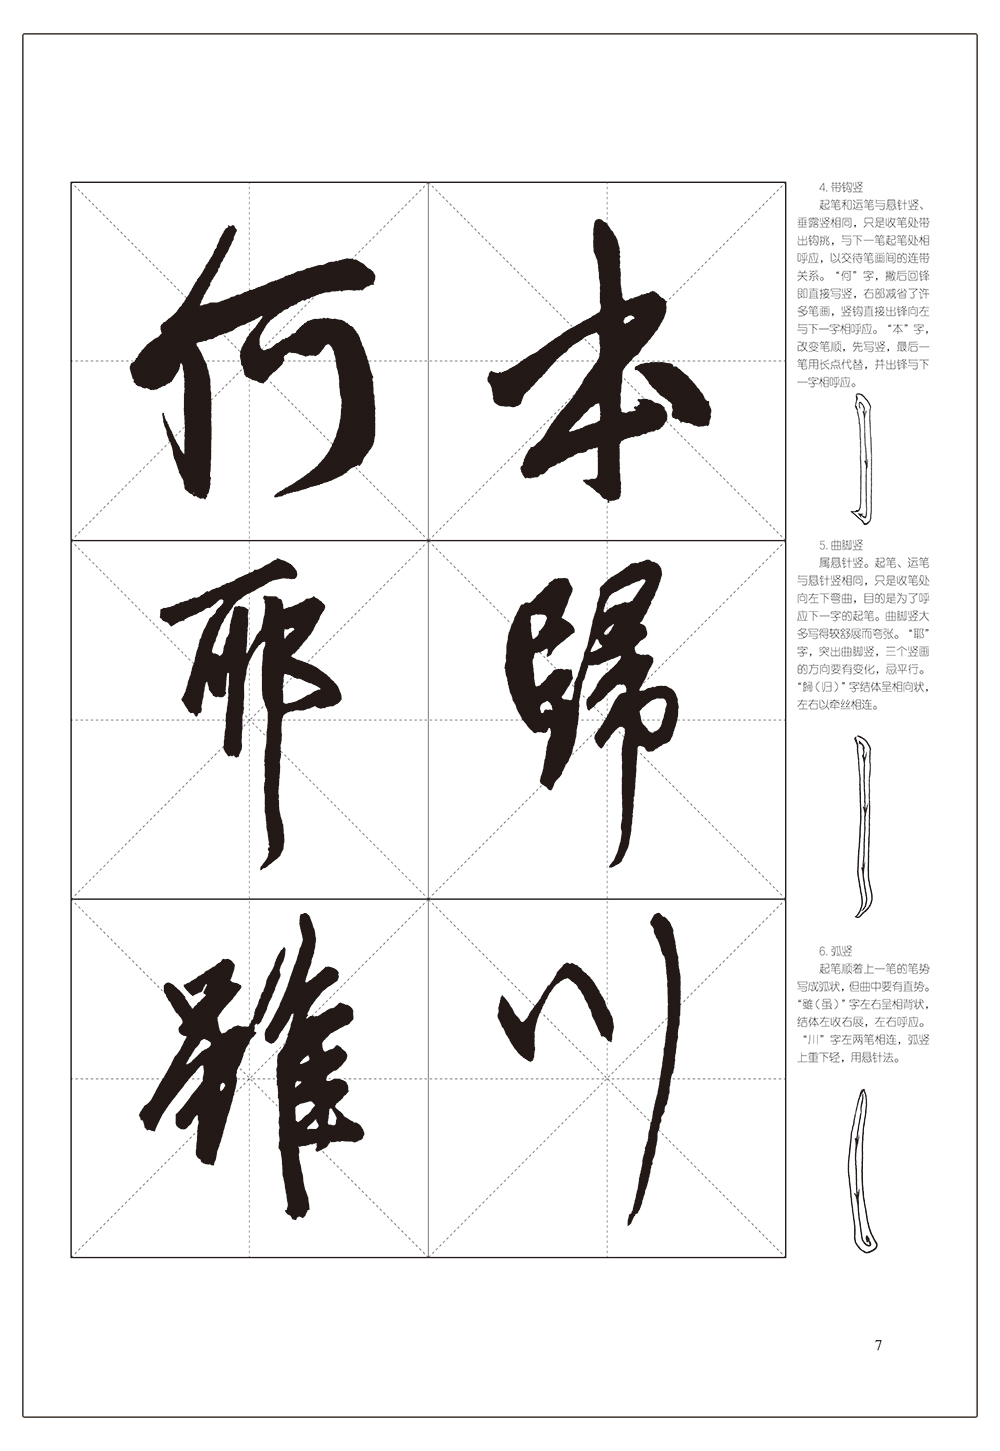 何本
4. 带钩竖
起笔和运笔与悬针竖、
垂露竖相同，只是收笔处带
出钩挑，与下一笔起笔处相
呼应，以交待笔画间的连带
关系。“何”字，撇后回锋
即直接写竖，右部减省了许
多笔画，竖钩直接出锋向左
与下一字相呼应。“本”字，
改变笔顺，先写竖，最后一
笔用长点代替，并出锋与下
一字相呼应。
耶歸
5. 曲脚竖
属悬针竖。起笔、运笔
与悬针竖相同，只是收笔处
向左下弯曲，目的是为了呼
应下一字的起笔。曲脚竖大
多写得较舒展而夸张。“耶”
字，突出曲脚竖，三个竖画
的方向要有变化，忌平行。
“歸（归）”字结体呈相向状，
左右以牵丝相连。
雖川
6. 弧竖
起笔顺着上一笔的笔势
写成弧状，但曲中要有直势。
“雖（虽）”字左右呈相背状，
结体左收右展，左右呼应。
“川”字左两笔相连，弧竖
上重下轻，用悬针法。
7